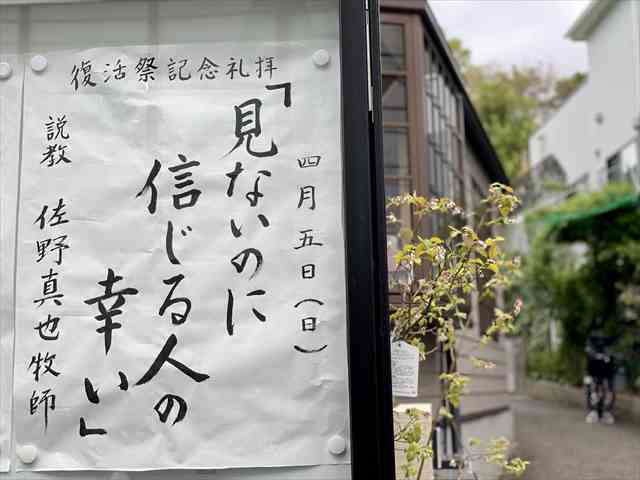 復活祭記念礼拝
四月五日(日)
「見ないのに
信じる人の
幸い」
説教 佐野真也牧師